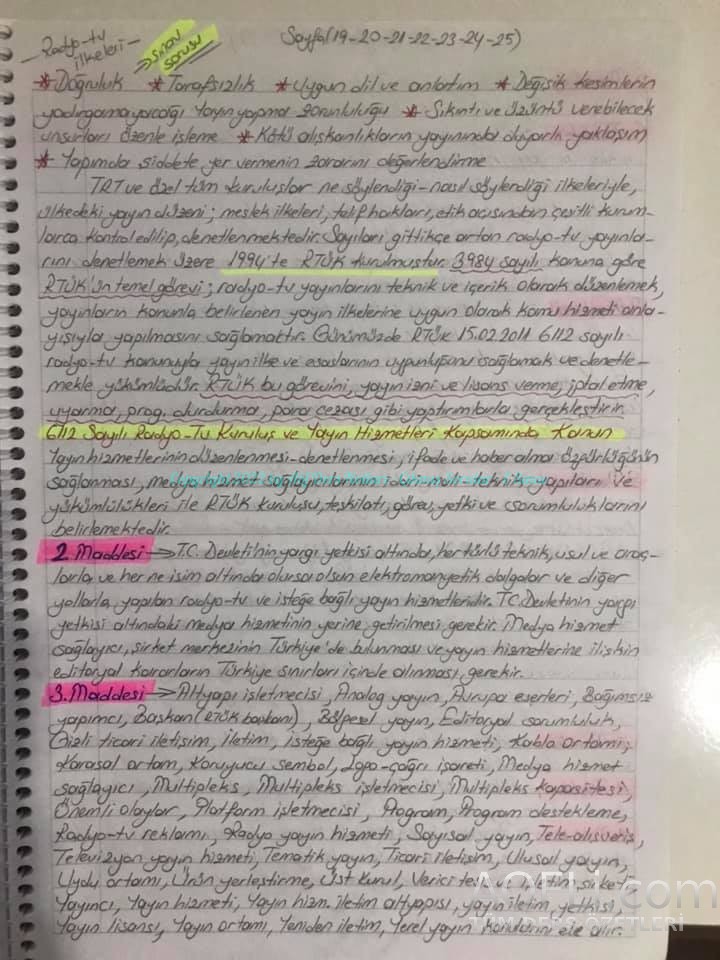 Radyo-tv ilkeleri
Sınav sorusu
Sayfa(19-20-21-22-23-24-25)
* Doğruluk * Tarafsızlık * Uygun dil ve anlatım * Değişik kesimlerin
yadırgamayacağı yayın yapma zorunluluğu * Sıkıntı ve üzüntü verebilecek
unsurları özenle işleme * Kötü alışkanlıkların yayınında duyarlı yaklaşım
* Yapımda şiddete yer vermenin zararını değerlendirme
TRT ve özel tüm kuruluşlar ne söylendiği-nasıl söylendiği ilkeleriyle,
ülkedeki yayın düzeni; meslek ilkeleri, telif hakları, etik açısından çeşitli kurum-
larca kontrol edilip, denetlenmektedir. Sayıları gittikçe artan radyo-tv yayınla-
rını denetlemek üzere 1994'te RTÜK kurulmuştur. 3984 sayılı kanuna göre
RTÜK'ün temel görevi; radyo-tv yayınlarını teknik ve içerik olarak düzenlemek,
yayınların kanunla belirlenen yayın ilkelerine uygun olarak kamu hizmeti anla-
yışıyla yapılmasını sağlamaktır. Günümüzde RTÜK 15.02.2011 6112 sayılı
radyo-tv kanunuyla yayın ilke ve esaslarının uygunluğunu sağlamak ve denetle-
mekle yükümlüdür. RTÜK bu görevini, yayın izni ve lisans verme, iptal etme,
uyarma, prog. durdurma, para cezası gibi yaptırımlarla gerçekleştirir.
6112 Sayılı Radyo-Tv Kuruluş ve Yayın Hizmetleri Kapsamında Kanun
Yayın hizmetlerinin düzenlenmesi-denetlenmesi, ifade ve haber alma özgürlüğünün
sağlanması, medya hizmet sağlayıcılarının idari-mali-teknik yapıları ve
yükümlülükleri ile RTÜK kuruluşu, teşkilatı, görev, yetki ve sorumluluklarını
belirlemektedir.
2. Maddesi → T.C. Devleti'nin yargı yetkisi altında, her türlü teknik, usul ve araç-
larla ve her ne isim altında olursa olsun elektromanyetik dalgalar ve diğer
yollarla yapılan radyo-tv ve isteğe bağlı yayın hizmetleridir. T.C. Devletinin yargı
yetkisi altındaki medya hizmetinin yerine getirilmesi gerekir. Medya hizmet
sağlayıcı, şirket merkezinin Türkiye'de bulunması ve yayın hizmetlerine ilişkin
editoryal kararların Türkiye sınırları içinde alınması, gerekir.
3. Maddesi → Altyapı işletmecisi, Analog yayın, Avrupa eserleri, Bağımsız
yapımcı, Başkan (RTÜK başkanı), Bölgesel yayın, Editoryal sorumluluk,
Gizli ticari iletişim, İletim, isteğe bağlı yayın hizmeti, Kablo ortamı,
Karasal ortam, Koruyucu sembol, Logo-çağrı işareti, Medya hizmet
sağlayıcı, Multipleks, Multipleks işletmecisi, Multipleks kapasitesi,
Önemli olaylar, Platform işletmecisi, Program, Program destekleme,
Radyo-tv reklamı, Radyo yayın hizmeti, Sayısal yayın, Tele-alışveriş,
Televizyon yayın hizmeti, Tematik yayın, Ticari iletişim, Ulusal yayın,
Uydu ortamı, Ürün yerleştirme, Üst Kurul, Verici tesis ve işletim şirketi
Yayıncı, Yayın hizmeti, Yayın hizm. iletim altyapısı, yayın iletim yetkisi,
Yayın lisansı, Yayın ortamı, Yeniden iletim, Yerel yayın konularını ele alır.
AOFLH.com
TÜM DERS ÖZETLERİ